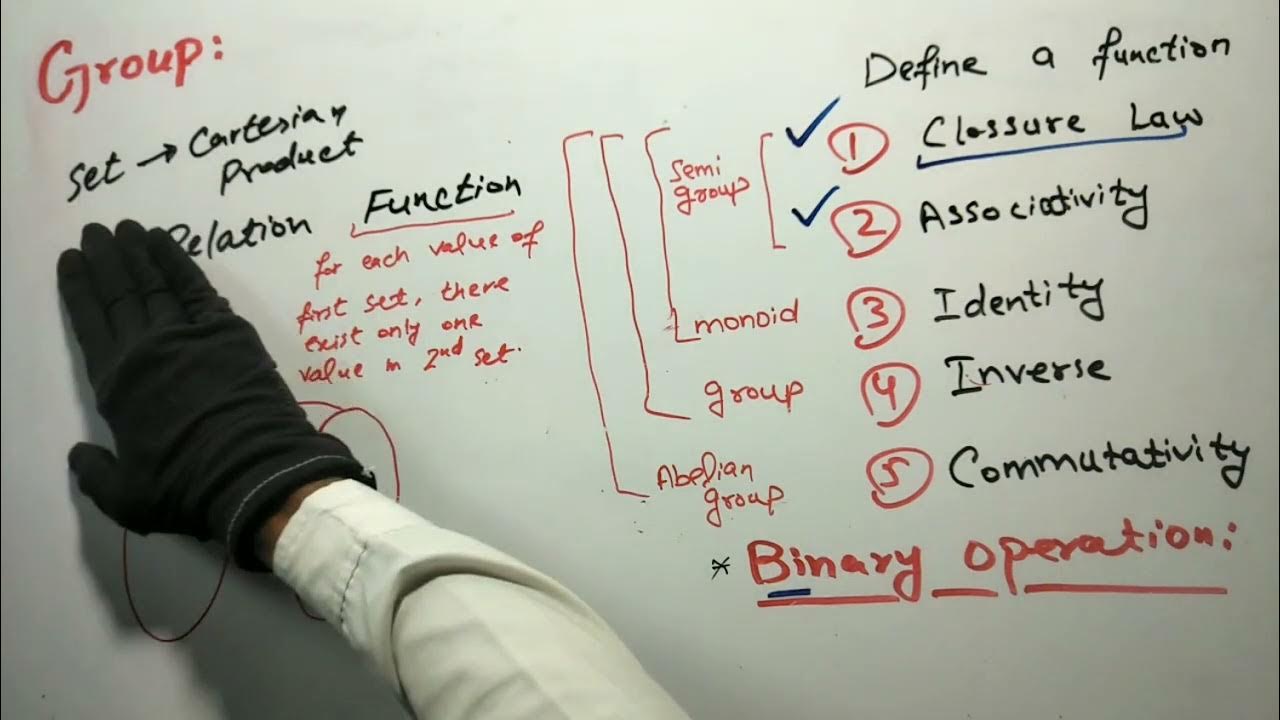 Group:
Set → Cartesian
Product
Relation
Function
for each value of
first set, there
exist only one
value in 2nd set.
Define a function
1 Classure Law
2 Associativity
3 Identity
4 Inverse
5 Commutativity
Semi
group
monoid
group
Abelian
group
* Binary operation: